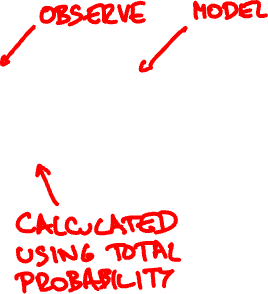 OBSERVE
MODEL
CALCULATED
USING TOTAL
PROBABILITY